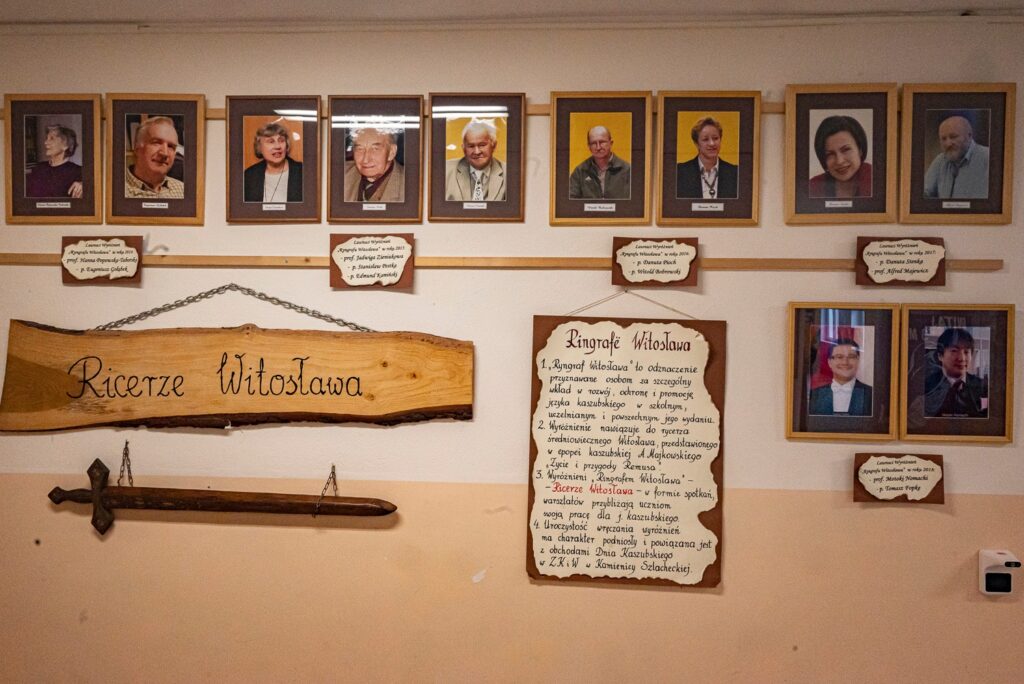 Laureaci Wyróżnień
"Ryngrafu Witosława" w roku 2014:
- prof. Hanna Popowska-Taborska
- p. Eugeniusz Gołąbek
Laureaci Wyróżnień
"Ryngrafu Witosława" w roku 2015:
- prof. Jadwiga Zieniukowa
- p. Stanisław Pestka
- p. Edmund Kamiński
Laureaci Wyróżnień
"Ryngrafu Witosława" w roku 2016:
- p. Danuta Pioch
- p. Witold Bobrowski
Laureaci Wyróżnień
"Ryngrafu Witosława" w roku 2017:
- p. Danuta Stenka
- prof. Alfred Majewicz
Ricerze Witosława
Ringrafë Witosława
1. „Ryngraf Witosława" to odznaczenie
przyznawane osobom za szczególny
wkład w rozwój, ochronę i promocję
języka kaszubskiego w szkolnym,
uczelnianym i powszechnym jego wydaniu.
2. Wyróżnienie nawiązuje do rycerza
średniowiecznego Witosława, przedstawionego
w epopei kaszubskiej A. Majkowskiego
„Życie i przygody Remusa"
3. Wyróżnieni „Ringrafem Witosława" -
- Ricerze Witosława - w formie spotkań,
warsztatów przybliżają uczniom
swoją pracę dla j. kaszubskiego.
4. Uroczystość wręczania wyróżnień
ma charakter podniosły i powiązana jest
z obchodami Dnia Kaszubskiego
w ZKiW w Kamienicy Szlacheckiej.
Laureaci Wyróżnień
"Ryngrafu Witosława" w roku 2018:
- prof. Motoki Nomachi
- p. Tomasz Fopke